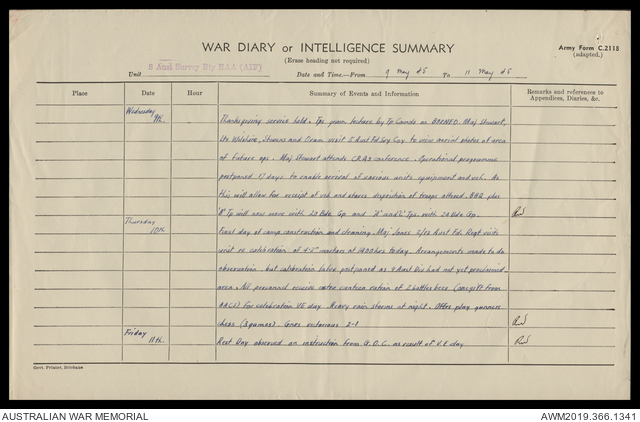 WAR DIARY or INTELLIGENCE SUMMARY
Army Form C.2118
(adapted.)
(Erase heading not required)
Unit 8 Aust Survey Bty RAA (AIF)
Date and Time.—From 9 May 45 To 11 May 45
Place Date Hour Summary of Events and Information Remarks and references to Appendices, Diaries, &c.
Wednesday 9th. Thanksgiving service held. Tps given lecture by Tp Comds on BORNEO. Maj Stewart,
Lts Wilshire, Stevens and visit 5 Aust Fd Svy Coy to view aerial photos of area
of future ops. Maj Stewart attends CRA's conference. Operational programme
postponed 17 days to enable arrival of various units equipment and veh. As
this will allow for receipt of veh and stores disposition of troops altered. BHQ plus
'B' Tp will now move with 20 Bde Gp and 'A' and 'C' Tps. with 24 Bde Gp.
Thursday 10th Final day of camp construction and cleaning. Maj Jones 2/12 Aust Fd. Regt visits
unit re calibration of 4.5" mortars at 1400 hrs today. Arrangements made to do
observation. but calibration later postponed as 9 Aust Div had not yet provisioned
area. All personnel receive extra canteen ration of 2 bottles beer (one gift from
AACS) for celebration VE day. Heavy rain storms at night. Offrs play gunners
chess (2 games). Gnrs victorious 2-1
Friday 11th. Rest Day observed on instruction from G.O.C. as result of V.E day.
Govt. Printer, Brisbane
AUSTRALIAN WAR MEMORIAL
AWM2019.366.1341